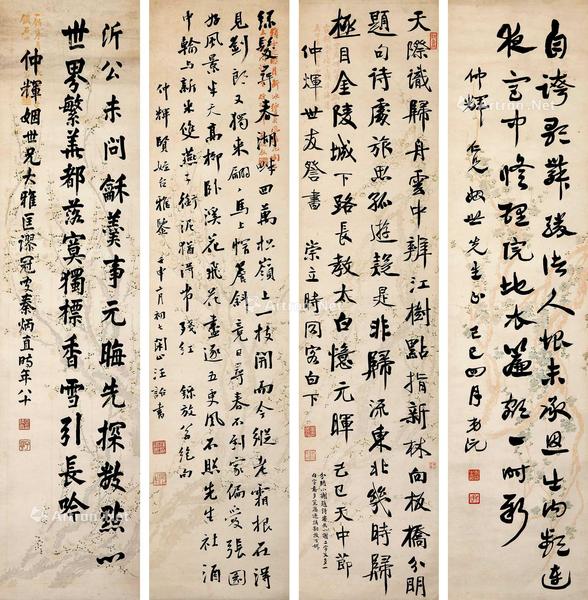 自誇歌舞勝諸人恨未承恩出内頻連
夜宮中修理院地衣簾額一時新
仲輝仁兄姻世先生正 己巳四月
天際識歸舟雲中辨江樹點指新林向板橋分明
題句詩處旅思孤遊是非歸流東北幾時歸
極目金陵城下路長教太白憶元暉 己巳天中節
仲煇世友詧書 崇立時同客白下
綠鬢尋春湖畔回萬松嶺上一枝開而今縱老霜根在得
見劉郎又獨來 翩翩馬上帽簷斜盡日尋春不到家偏愛張園
好風景半天高柳臥溪花 飛花盡逐五更風不照先生社酒
中輪與新來雙燕子銜泥猶得帶殘紅 錄放翁絕句
仲輝賢姪台雅鑒 壬申二月初七閒止汪詒書
沂公未問龢羹事元晦先探數點心
世界繁華都落寞獨標香雪引長唫
仲輝姻世兄大雅匡謬冠雲秦炳直時年八十